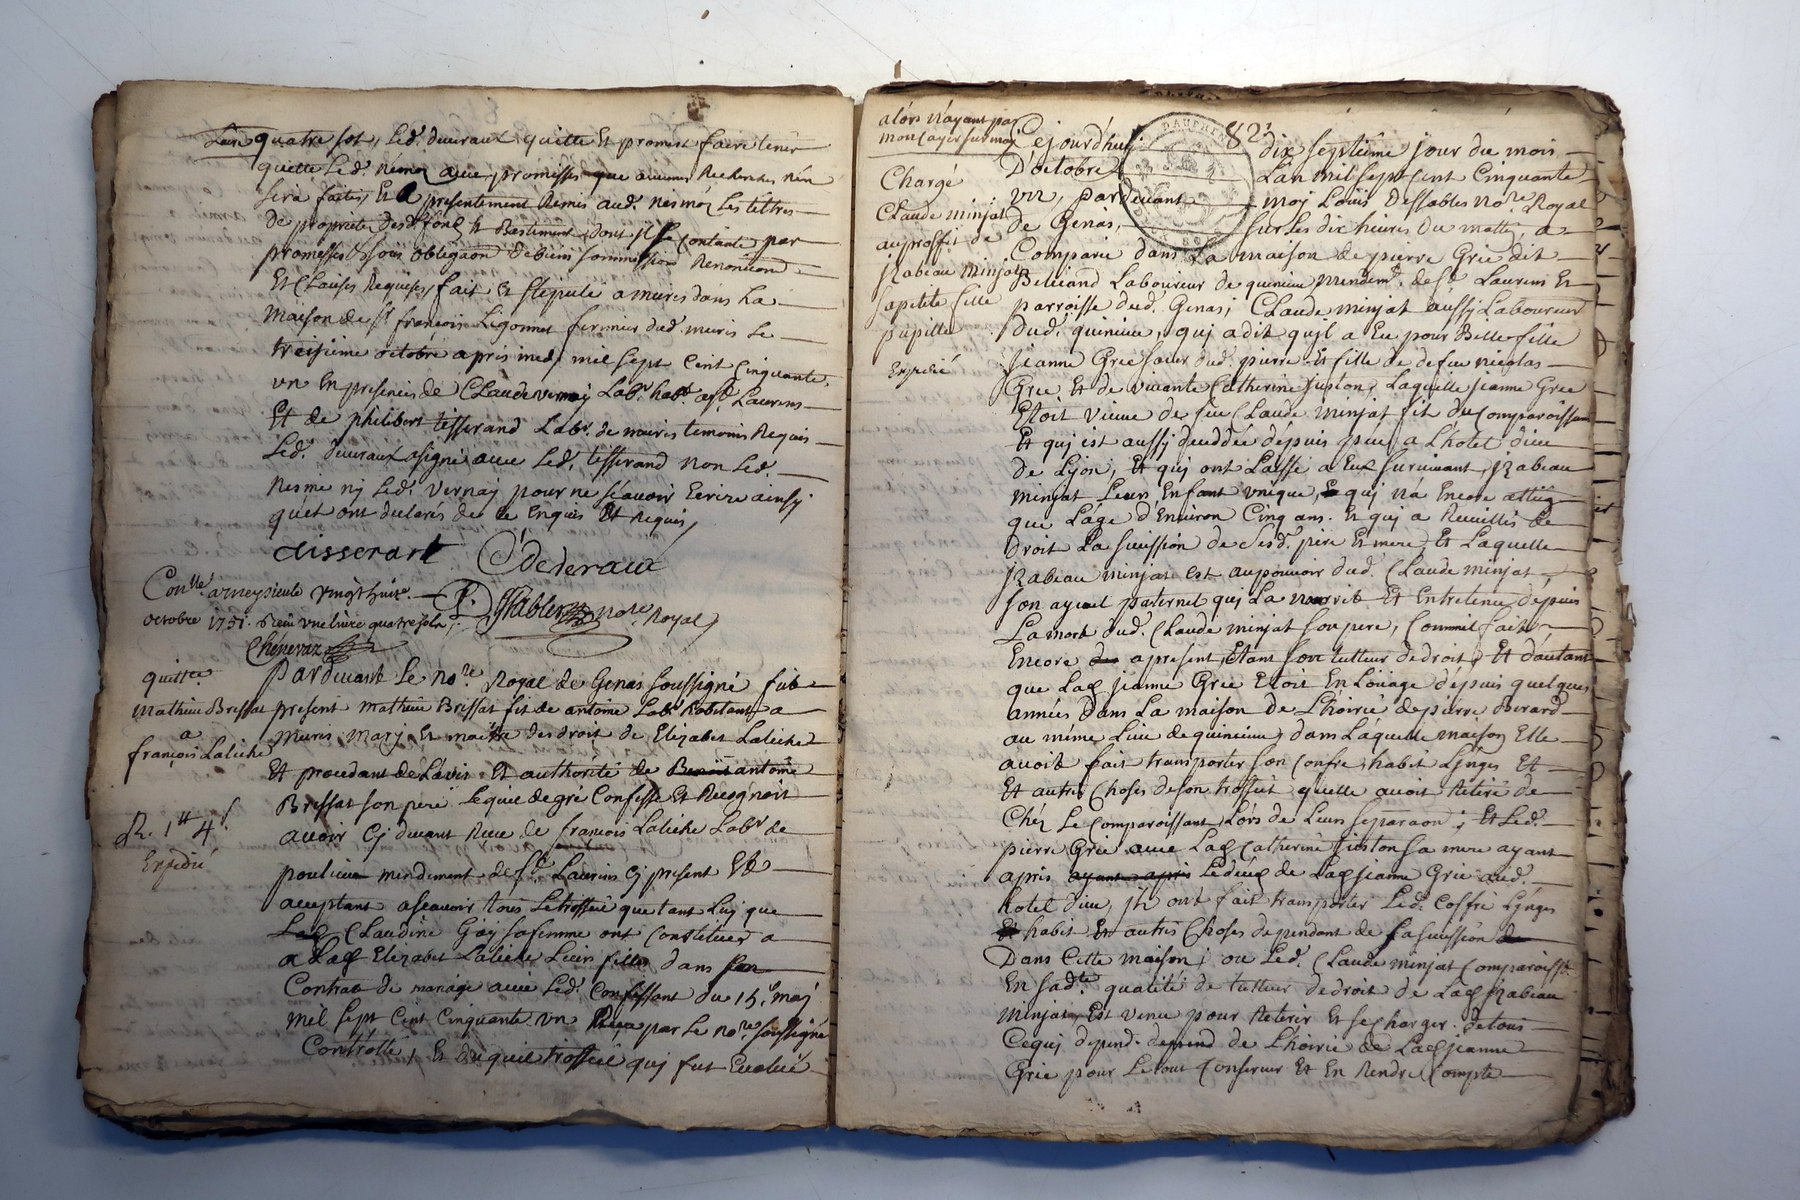 quatre sol, led. deveraux quitte et promest faire tenir
quitte led. nesmoz avec promesses que aucunes recherches n'en
sera faites, et a presentement remis aud. nesmoz les tettres
de propriete desd. fonds et Bastiment dont il se contante par
promesses sous obligaon de biens sommission renontion
Et Clauses Requises, fait et stipulé a mures dans la
maison de sr françois Ligonnet fermier dud. muris le
treisieme octobre apres medy mil sept cent cinquante
un en presences de Claude vernay Labr hant a st. Laurens
Et de philibert tisserand Labr. de mures temoins Requis
Led. deveraux a signé avec led. tisserand non led.
nesme ny led. vernay pour ne sçavoir Ecrire ainsy
quet ont declarés de ce Enquis Et Requis
tisserant C dederaux
Conlle. a meysieule vingt huit
octobre 1751. Reçu une livre quatre sols
Dessables nore. Royal
Chénevaz
quittce
mathieu Bressat
a
françois Laliche
R. 1tt 4s
Expedié
Pardevant Le nore Royal de Genas soussigné fut
present mathieu Bressat fils de antoine Labr habitant a
mures mary et maitre des droit de Elizabet Laliche
Et procedant de L'avis et authorité de antoine
Bressat son pere Lequel de gré Confesse Et Recognoit
avoir cy devant Receu de françois Laliche Labr de
poulieu mendement de st. Laurens cy present Et
acceptant a scavoir tous Le trosseé que tant Luy que
Laq Claudine Gay sa femme ont Constituer a
a Laq Elizabet Laliche Leurs fille dans
Contrat de mariage avec Led. Confessant du 15e. may
mil sept cent cinquante un par le nore soussigné
Controllé, et duquel trosseé quy fut Evalué
alors n'ayant pas
82
Chargé
Claude minjat
au proffit de
Izabeau minjat
sa petite fille
pupille
Expedié
DAUPHINÉ
Cejourd'huy dix septieme jour du mois
D'octobre L'an mil sept cent cinquante
un, pardevant moy Loüis Dessables nore Royal
de Genas, sur les dix heures du matin, a
Comparu dans La maison de pierre Grée dit
Beliand Laboureur de quincieu mendemt. de st. Laurens Et
parroisse dud. Genas, Claude minjat aussy Laboureur
dud. quincieu, quy a dit qu'il a Eu pour Belle fille
jeanne Grée sœur dud. pierre et fille de defeu nicolas
Grée Et de vivante Catherine juston, Laquelle jeanne Grée
Etoit veuve de feu Claude minjat fils du Comparoissant
Et quy est aussy deceddée depuis peu a L'hotel dieu
de Lyon, Et quy ont Laissé a Eux survivant, Izabeau
minjat Leurs Enfant unique, quy n'a Encore atteig
que L'age d'Environ Cinq ans. Et quy a Recuillis de
droit La succession de sesd. pere Et mere, Et Laquelle
Izabeau minjat est au pouvoir dud. Claude minjat
son ayeul paternel quy La nourrit Et Entretenue depuis
La mort dud. Claude minjat son pere, Comme il fait
Encore a present, Etant son tutteur de droit, Et d'autant
que Laq jeanne Grée Etoit En Louage depuis quelques
années Dans La maison de L'hoirie de pierre Berard
au même Lieu de quincieu, dans Laquelle maison Elle
avoit fait transporter son Coffre, habit Lynges Et
Et autres Choses de son trosseé qu'elle avoit Retiré de
Chéz Le Comparoissant, Lors de Leurs separaon; Et Led.
pierre Grée avec Laq Catherine juston sa mere ayant
apres ayant apres Le décés de Laq jeanne Grée aud.
hotel dieu, ils ont fait transporter Led. Coffre Lynges
habit Et autres Choses dependant de sa succession
Dans Cette maison, ou Led. Claude minjat Comparoisst
En sadte. qualité de tutteur de droit de Laq Izabeau
minjat, Est venu pour Retirer Et se charger de tous
Cequy depend. depend de L'hoirie de Laq jeanne
Grée pour Le tout Conserver Et En Rendre Compte